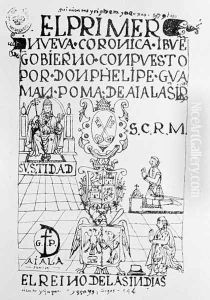 EL PRIMER
NVEVA CORONICA IBVE
GOBIERNO CONPVESTO
POR DON PHELIPE GVA
MAN POMA DE AIALA S
S.C.R.M.
SVSTIDAD
G P
AIALA
EL REINO DE LAS INDIAS